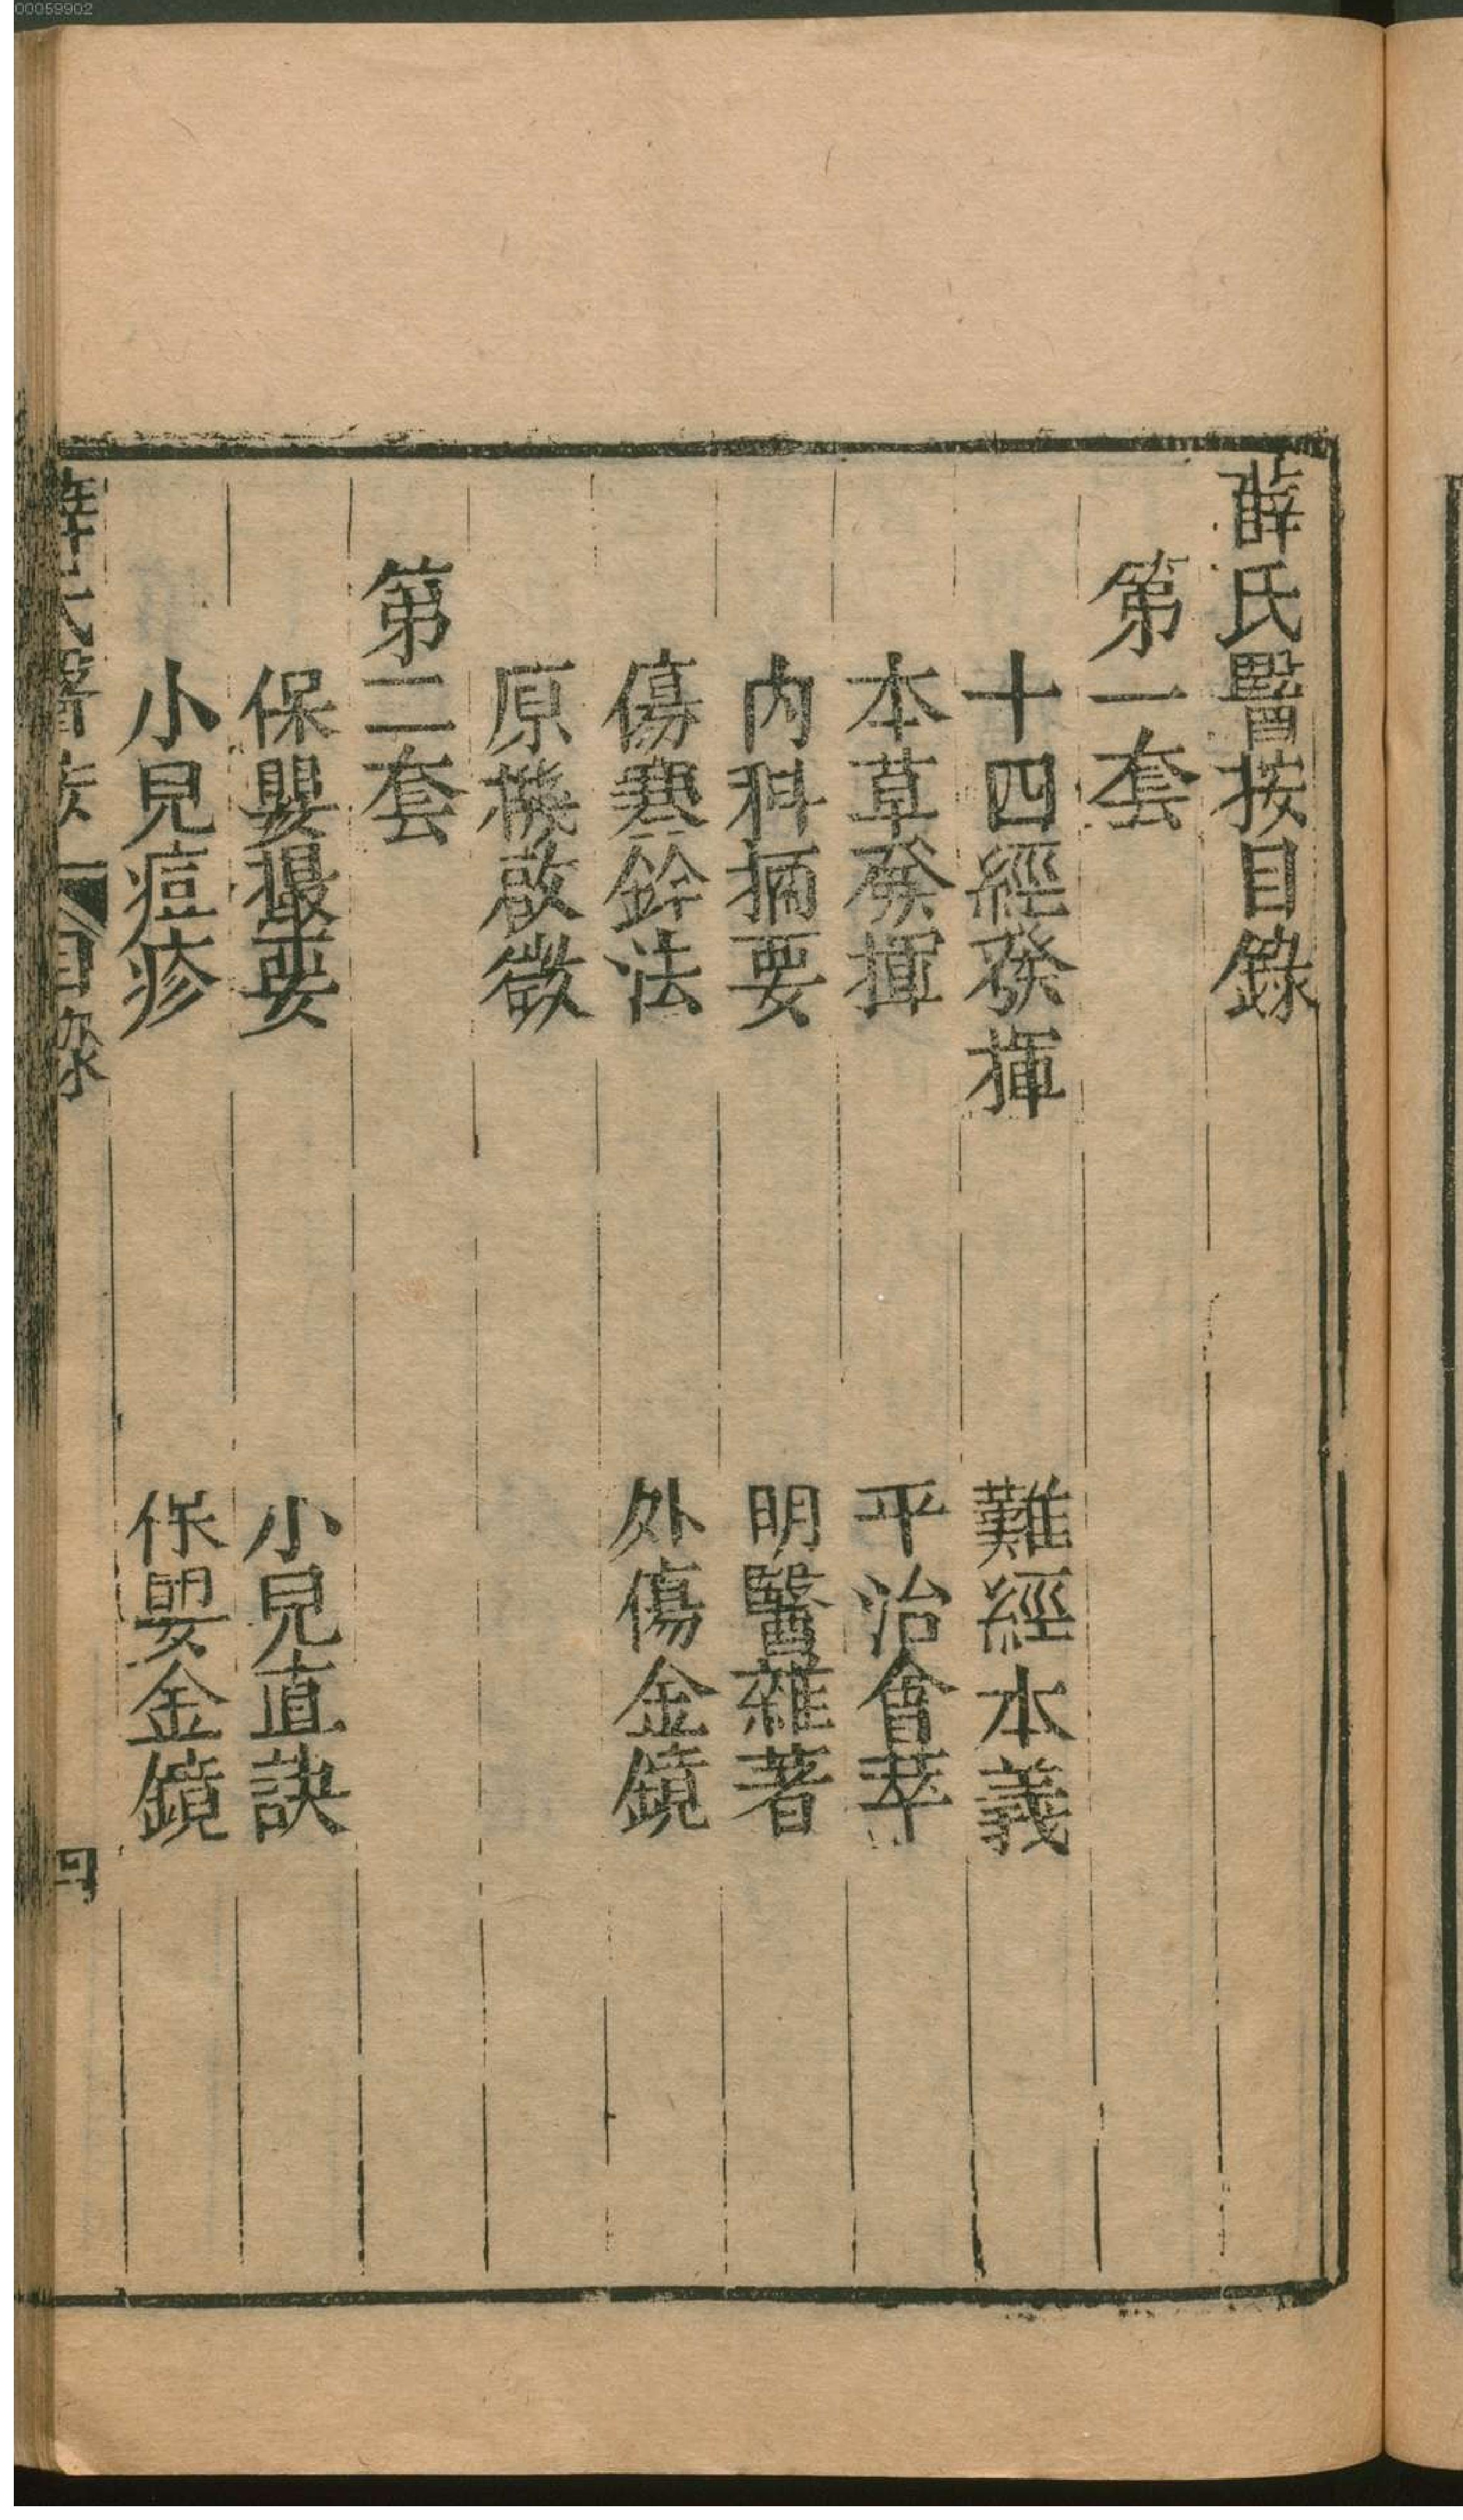 00059902
薛氏醫按目錄
第一套
十四經發揮　難經本義
本草發揮　平治會萃
内科摘要　明醫雜著
傷寒鈐法　外傷金鏡
原機啟微
第二套
保嬰撮要　小兒直訣
小兒痘疹　保嬰金鏡
薛氏醫按　目錄　四